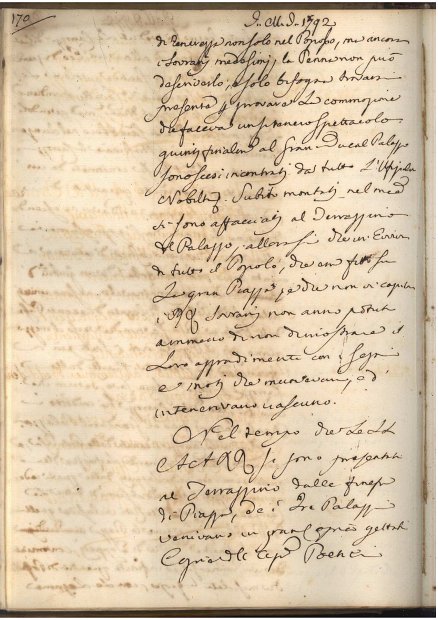 170
1792
di tenerezza non solo nel Popolo, ma ancora
i Sovrani medesimi, la Penna non può
descriverlo, e solo bisogna trovarsi
presente p provare la commozione
che faceva un sì tenero spettacolo
quivi finalm al Gran-Ducal Palazzo
sono scesi incontrati da tutta l'
Nobiltà. Subito montati nel
si sono affacciati al Terrazzino
del Palazzo, allora si die un Evviva
di tutto il Popolo, che era
la gran Piazza, e che non vi capiva
i Sovrani non anno potuto
a meno di non dimostrare il
Loro aggradimento con i segni
e moti che
intenerivano ciascuno.
Nel tempo che Le LL
si sono presentati
al Terrazzino dalle finestre
di Piazza, de i Tre Palazzi
venivano in gran copia gettati
Poetici